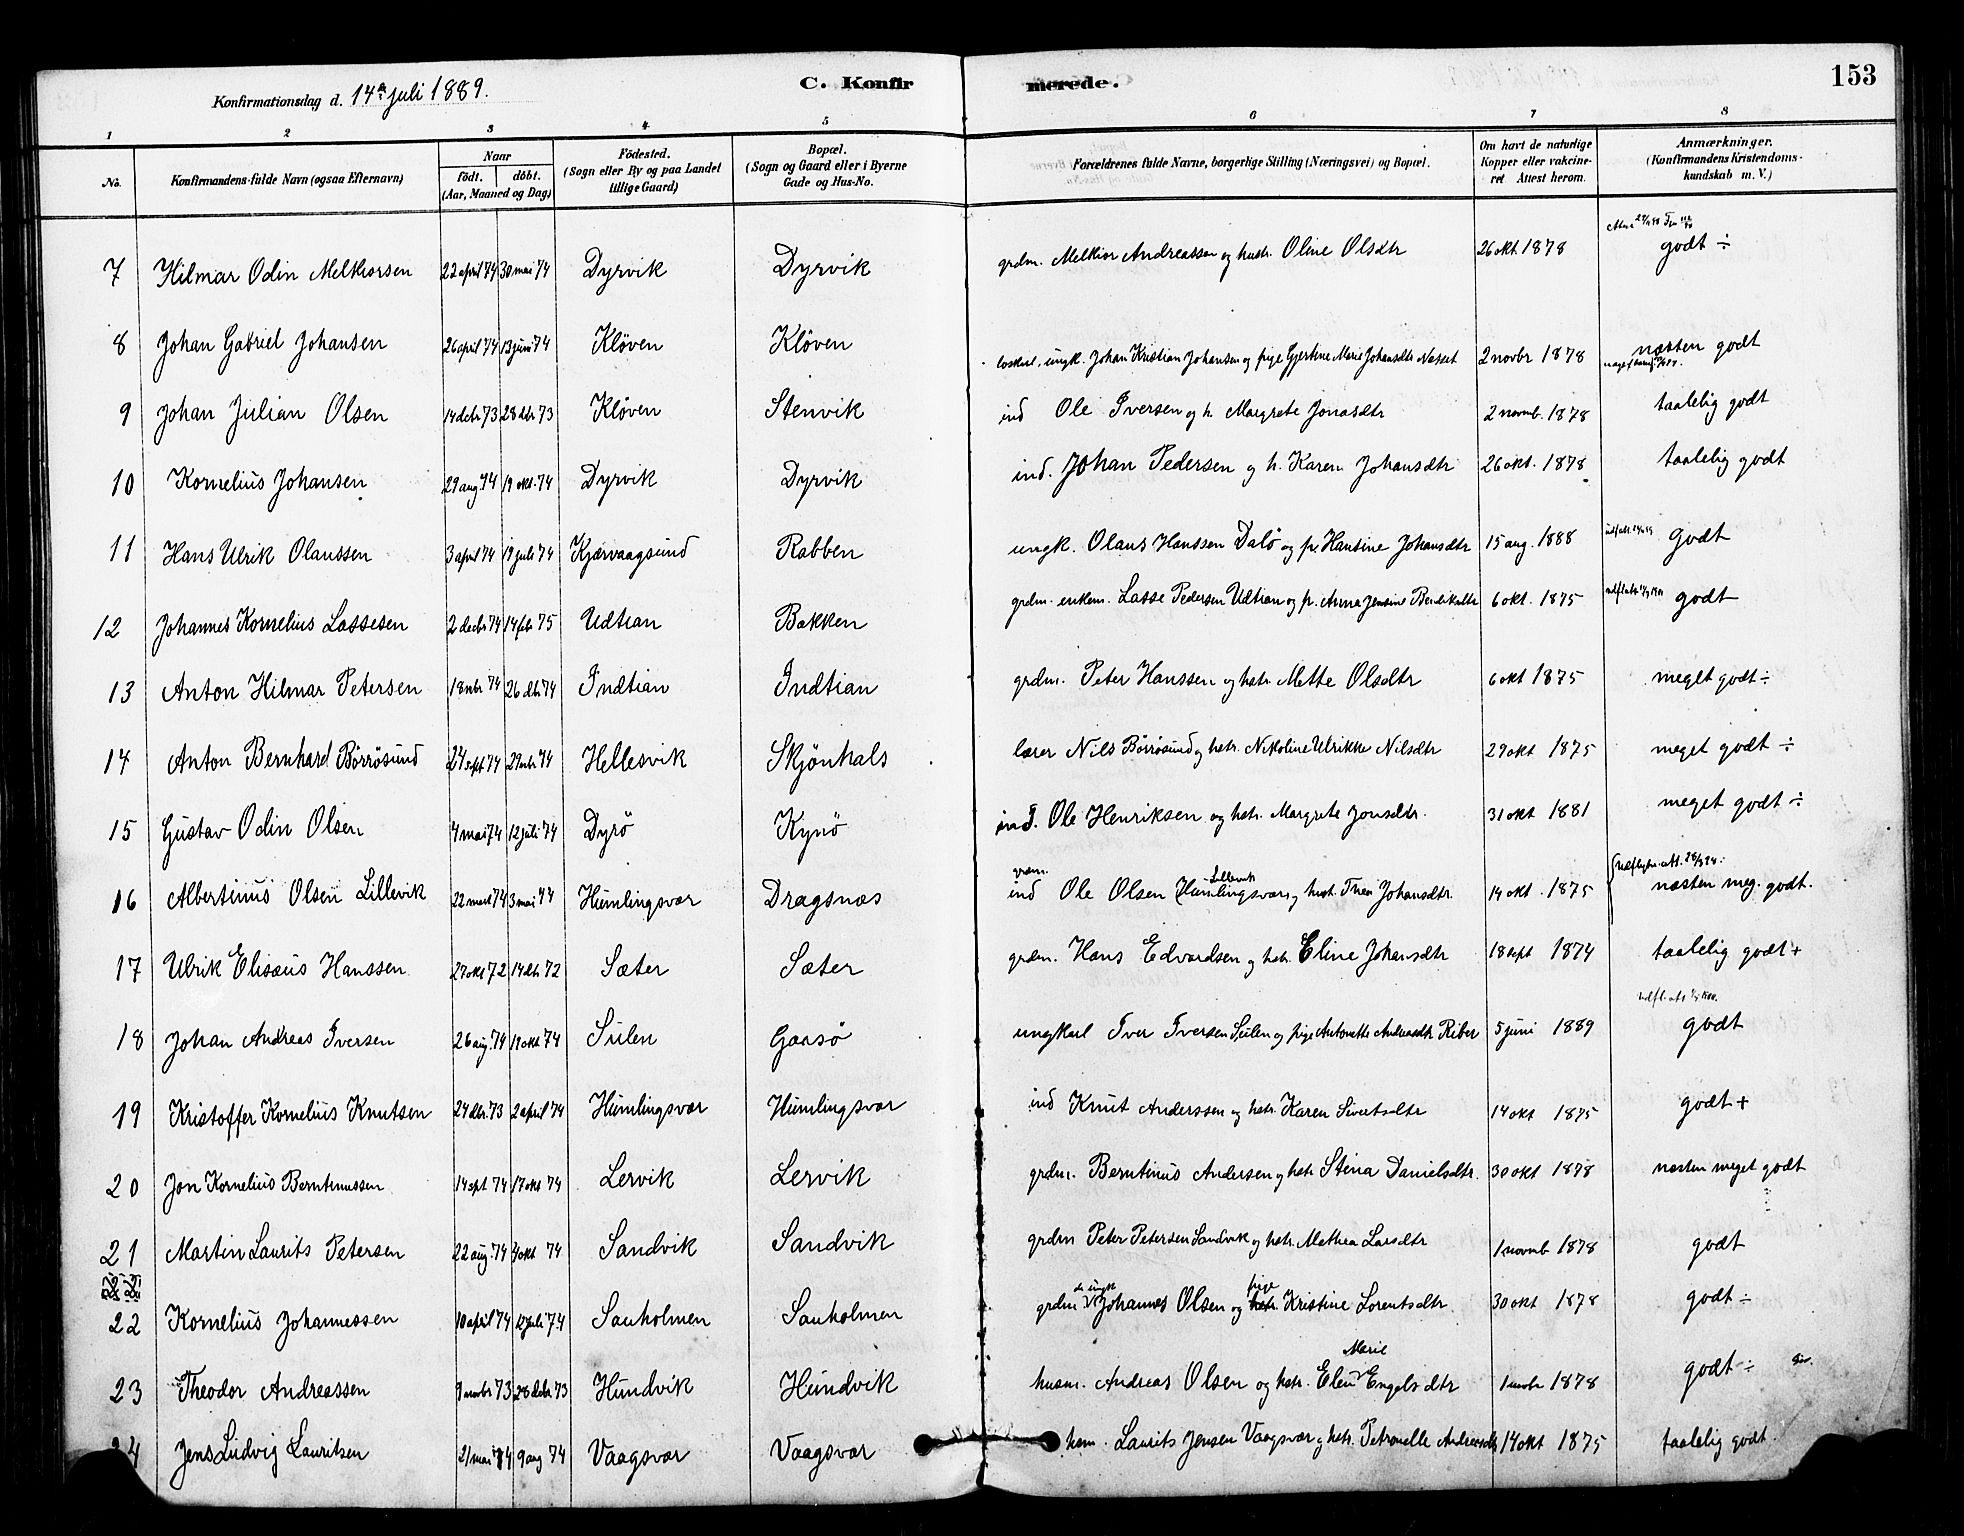 Konfirmationsdag d. 14de juli 1889.
C. Konfirmerede.
153
1 2 3 4 5 6 7 8
No.
Konfirmandens fulde Navn (ogsaa Efternavn)
Naar
födt. döbt.
(Aar, Maaned og Dag)
Födested.
(Sogn eller By og paa Landet
tillige Gaard)
Bopæl.
(Sogn og Gaard eller i Byerne
Gade og Hus-No.
Forældrenes fulde Navne, borgerlige Stilling (Næringsvei) og Bopæl.
Om havt de naturlige
Kopper eller vakcine-
ret Attest herom.
Anmærkninger.
(Konfirmandens Kristendoms-
kundskab m. V.)
7 Hilmar Odin Melkiorsen 22 april 74 30 mai 74 Dyrvik Dyrvik grdm. Melkior Andreassen og hustr. Oline Olsdtr 26 okt. 1878 godt ÷
8 Johan Gabriel Johansen 26 april 74 13 juni 74 Kløven Kløven loskarl, ungk. Johan Kristian Johansen og pige Gjertine Marie Johansdtr Nesset 2 novbr 1878 næsten godt
9 Johan Julian Olsen 14 debr 73 28 dbr 73 Kløven Stenvik ind Ole Iversen og h. Margrete Jonasdtr 2 novmb. 1878 taalelig godt
10 Kornelius Johansen 29 aug. 74 19 okt. 74 Dyrvik Dyrvik ind. Johan Pedersen og h. Karen Johansdtr 26 okt. 1878 taalelig godt
11 Hans Ulrik Olaussen 3 april 74 19 juli 74 Kjærvaagsund Rabben ungk. Olaus Hanssen Dalø og p. Hansine Johansdtr 15 aug. 1888 godt
12 Johannes Kornelius Lassesen 2 decbr 74 14 febr 75 Udtian Bakken grdm. enkem. Lasse Pedersen Udtian og p. Anna Jensine Bendiksdtr 6 okt. 1875 godt
13 Anton Hilmar Petersen 18 nbr 74 26 dbr 74 Indtian Indtian grdm. Peter Hanssen og hstr. Mette Olsdtr 6 okt 1875 meget godt ÷
14 Anton Bernhard Börrösund 24 sept 74 29 nbr 74 Hellesvik Skjönhals lærer Nils Börrösund og hstr. Nikoline Ulrikke Nilsdtr 29 okt 1875 meget godt ÷
15 Gustav Odin Olsen 4 mai 74 12 juli 74 Dyrö Kynö ind. Ole Henriksen og hstr. Margrete Jonsdtr. 31 okt 1881 meget godt ÷
grdm. Lillevik
16 Albertinus Olsen Lillevik 22 mart 74 3 mai 74 Humlingsvær Dragsnæs ind Ole Olsen Humlingsvær og hust. Thea Johansdtr. 14 okt. 1875 næsten meg. godt.
17 Ulrik Elisæus Hanssen 27 okt 72 14 dbr 72 Sæter Sæter grdm. Hans Edvardsen og hstr. Eline Johansdtr 18 sept 1874 taalelig godt +
18 Johan Andreas Iversen 26 aug. 74 11 okt 74 Sulen Gaasø ungkarl Iver Iversen Sulen og pige Antonette Andreasdtr Riber 5 juni 1889 godt
19 Kristoffer Kornelius Knutsen 24 dbr. 73 2 april 74 Humlingsvær Humlingsvær ind Knut Anderssen og hstr. Karen Sivertsdtr 14 okt 1875 godt +
20 Jon Kornelius Berntinussen 14 spt 74 17 okt 74 Lervik Lervik grdm. Berntinus Andersen og hstr Stina Danielsdtr. 30 okt 1878 næsten meget godt
21 Martin Laurits Petersen 22 aug. 74 4 okt 74 Sandvik Sandvik grdm Peter Petersen Sandvik og hstr. Mathea Larsdtr 1 novmb 1878 godt
ungk pige
22 Kornelius Johannessen 10 april 74 12 juli 74 Sauholmen Sauholmen grdm Johannes Olsen og hstr. Kristine Lorentsdtr 30 okt 1878 godt ÷
Marie
23 Theodor Andreassen 9 novbr 73 28 debr 73 Hundvik Hundvik husm. Andreas Olsen og hstr. Elen Engelsdtr 1 novbr 1878 godt ÷
24 Jens Ludvig Lauritsen 21 mai 74 9 aug 74 Vaagsvær Vaagsvær hsm. Laurits Jensen Vaagsvær og hstr. Petronelle Andreasdtr 14 okt 1875 taalelig godt.